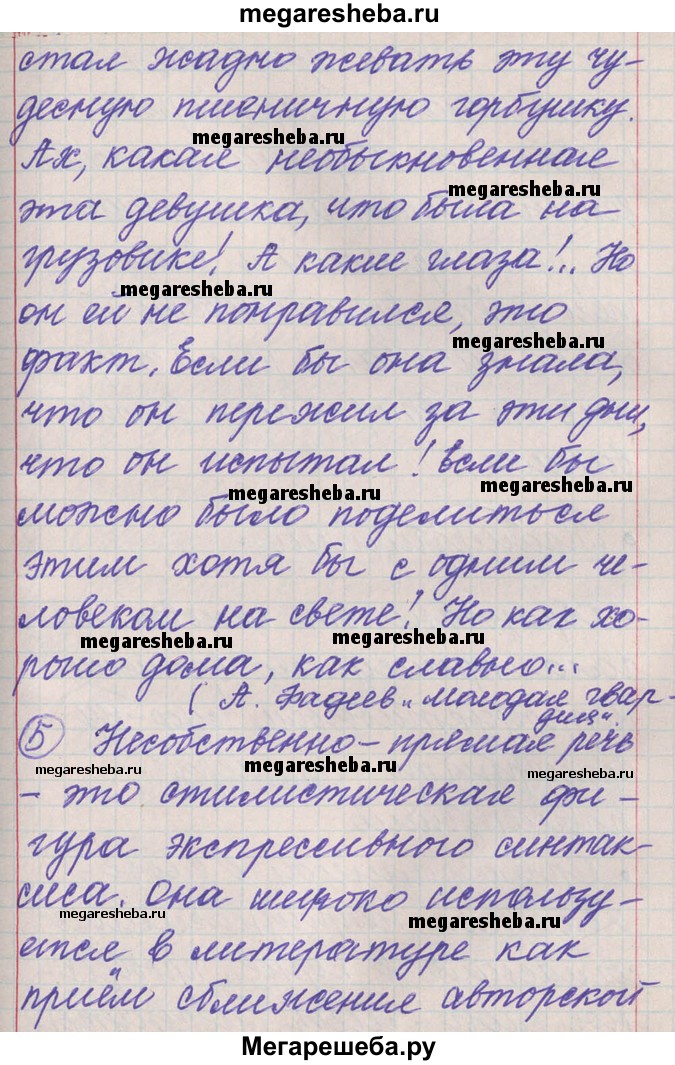 megaresheba.ru
стал жадно жевать эту чу-
десную пшеничную горбушку.
megaresheba.ru
Ах, какая необыкновенная
megaresheba.ru
эта девушка, что была на
грузовике! А какие глаза!.. Но
megaresheba.ru
он ей не понравился, это
megaresheba.ru
факт. Если бы она знала,
что он пережил за эти дни,
что он испытал! Если бы
megaresheba.ru
megaresheba.ru
можно было поделиться
этим хотя бы с одним че-
ловеком на свете! Но как хо-
megaresheba.ru
megaresheba.ru
рошо дома, как славно...
(А. Фадеев „Молодая гвар-
дия“.
⑤ Несобственно-прямая речь
megaresheba.ru
megaresheba.ru
megaresheba.ru
- это стилистическая фи-
гура экспрессивного синтак-
сиса. Она широко использу-
megaresheba.ru
megaresheba.ru
ется в литературе как
приём сближения авторской
Мегарешеба.ру